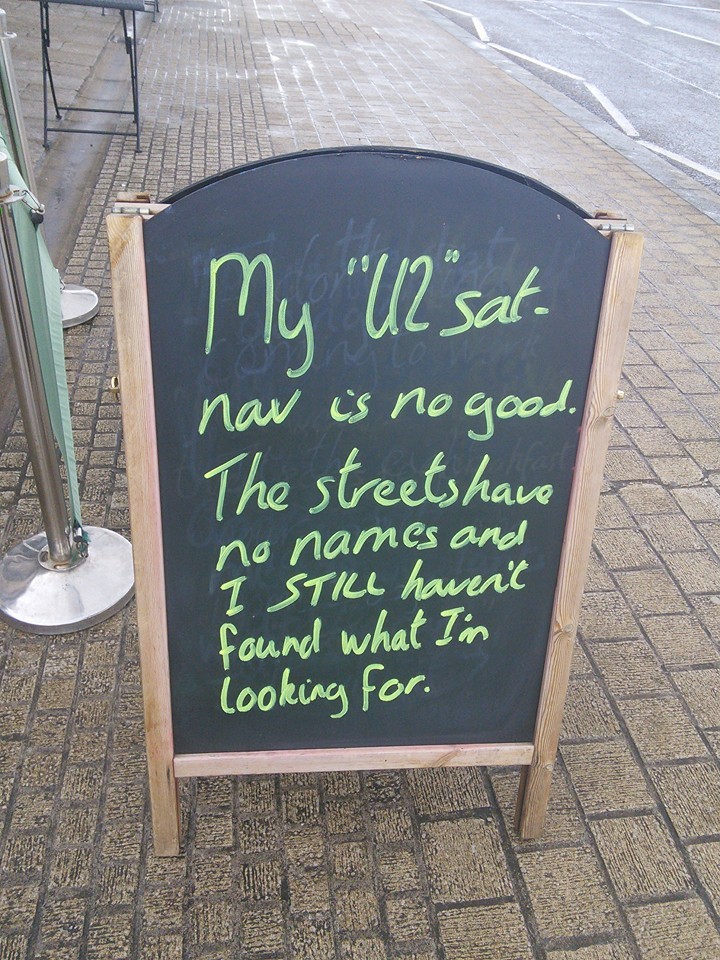 My "U2" sat-
nav is no good.
The streets have
no names and
I STILL haven't
found what I'm
looking for.